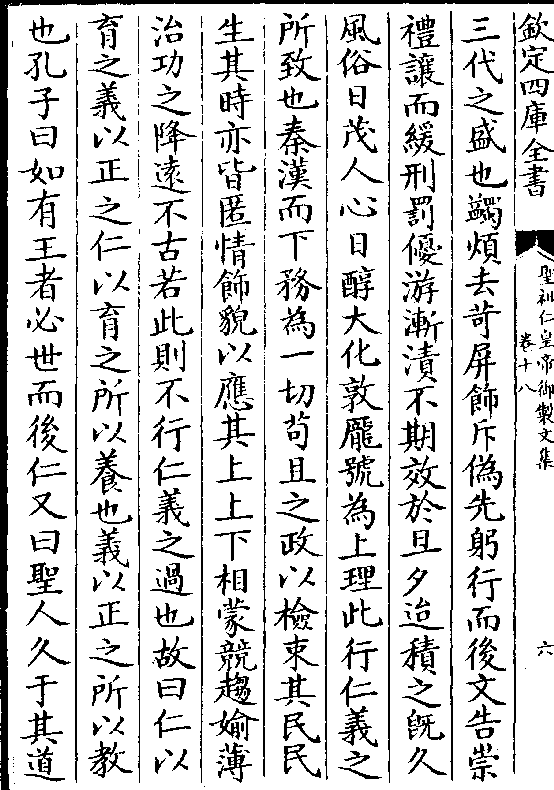 欽定四庫全書
聖祖仁皇帝御製文集
卷十八
六
三代之盛也蠲煩去苛屏飾斥偽先躬行而後文告崇
禮讓而緩刑罰優游漸漬不期效於旦夕迨積之旣久
風俗日茂人心日醇大化敦龐號為上理此行仁義之
所致也秦漢而下務為一切苟且之政以檢束其民民
生其時亦皆匿情飾貌以應其上上下相蒙競趨媮薄
治功之降遠不古若此則不行仁義之過也故曰仁以
育之義以正之仁以育之所以養也義以正之所以教
也孔子曰如有王者必世而後仁又曰聖人久于其道